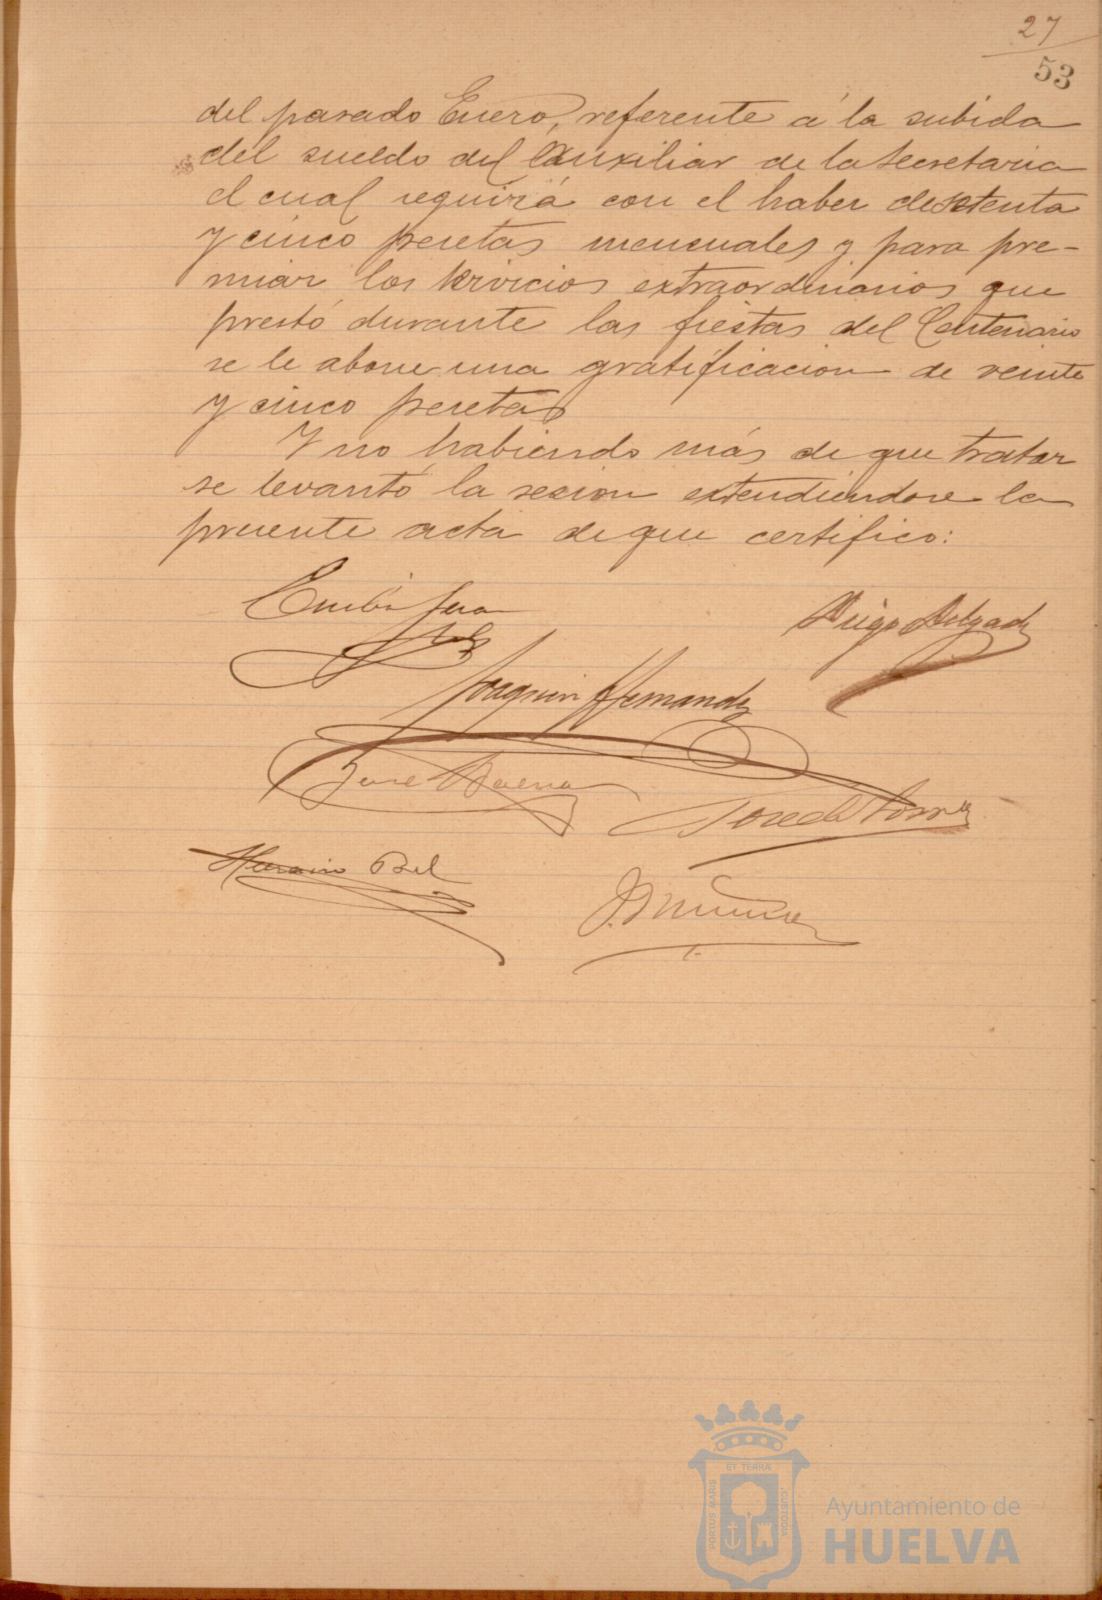 27
53
del pasado Enero, referente á la subida
del sueldo del Auxiliar de la Secretaria
el cual seguirá con el haber de setenta
y cinco pesetas mensuales y para pre-
miar los servicios extraordinarios que
prestó durante las fiestas del Centenario
se le abone una gratificacion de veinte
y cinco pesetas
Y no habiendo más de que tratar
se levantó la sesion extendiendose la
presente acta de que certifico:
Diego Delgado
Joaquin Hernandez
José Baena
José de la Torre
Horacio Bel
J. Muñoz
ET TERRÆ
PORTUS MARIS
CUSTODIA
Ayuntamiento de
HUELVA